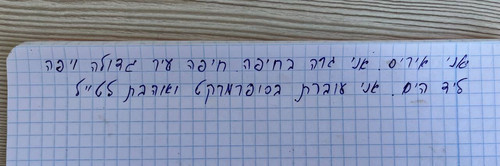 אני איריס. אני גרה בחיפה. חיפה עיר גדולה ויפה
ליד הים. אני עובדת בסופרמרקט ואוהבת לטייל